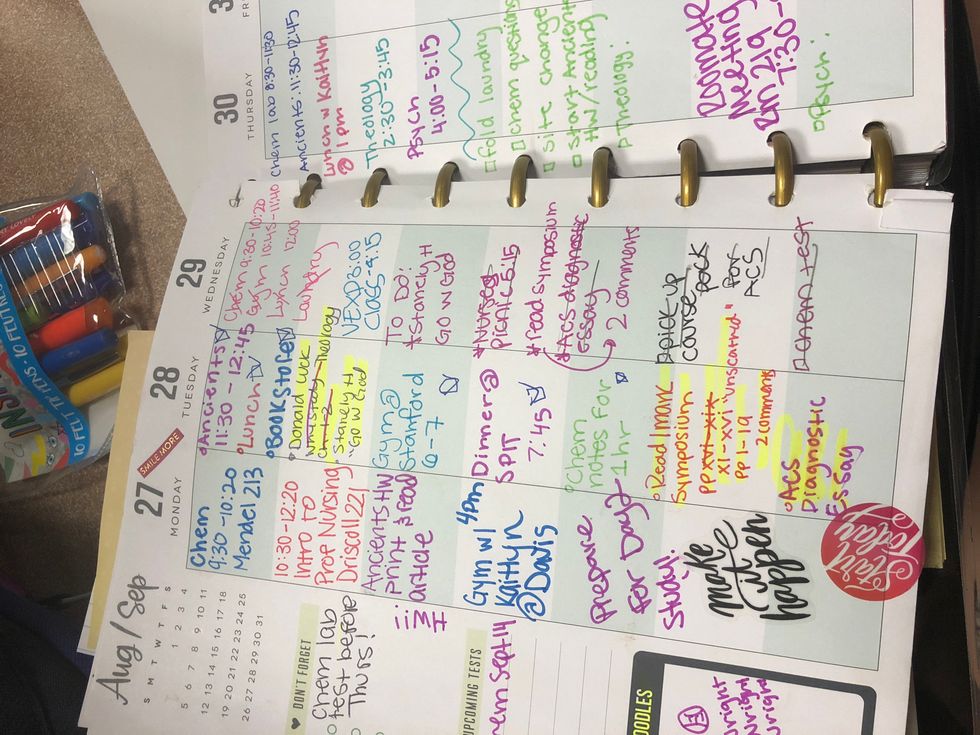 Aug/Sep
S M T W T F S
1 2 3 4
5 6 7 8 9 10 11
12 13 14 15 16 17 18
19 20 21 22 23 24 25
26 27 28 29 30 31
DON'T FORGET
Chem lab
test before
Thurs!
UPCOMING TESTS
Sept 14
27
MONDAY
SMILE MORE
Chem
9:30-10:20
Mendel 213
10:30-12:20
Intro to
Prop Nursing
Driscoll 221
Ancients HW
print & read
article
4pm
Gym w/
Kaitlyn
@Davis
Prepare
for Day!
Study!
make
it
happen
Start
Today
28
TUESDAY
Ancients
11:30-12:45
Lunch
Bookstore
Donald
Theology
Stanely H
"Go w God"
Gym @
Stanford
6-7
Dinner @
SPIT
7:45
Chem
notes for
1 hr
Read/mark
Symposium
XI-XVI
pp 1-19
2 comments
ACS
Diagnostic
Essay
29
WEDNESDAY
Chem 9:30-10:20
Gym 10:45-11:40
Lunch 12:00
Laundry
NEXP 8:00
Class-9:15
TO DO:
*Stanely H
Go w God
*Nursing
picnic 5:15
*read symposium
*ACS diagnostic
essay
2 comments
pick up
course pack
for
ACS
chem test
30
THURSDAY
Chem lab 8:30-11:30
Ancients: 11:30-12:45
Lunch w Kaitlyn
@ 1pm
Theology
2:30-3:45
Psych
4:00-5:15
fold laundry
chem questions
site change
start Ancient
HW/reading
theology!
Roomate
Meeting
Rm 219
7:30-
psych!
FR
10 FELT TIP PENS